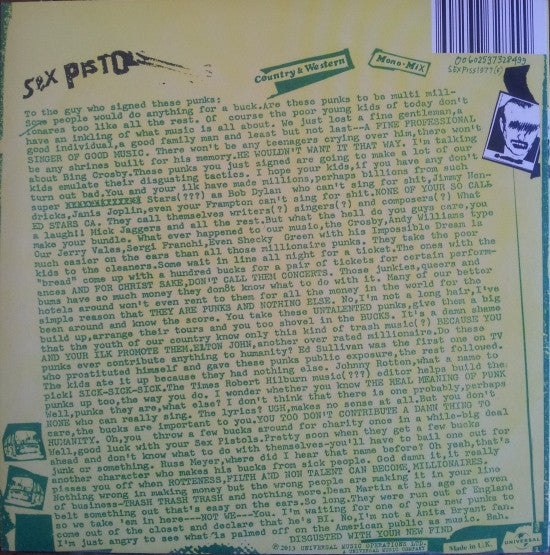 SEX PISTOLS
Country & Western
Mono-Mix
00602537328499
SEXPISS1977(F)
To the guy who signed these punks:
Some people would do anything for a buck.Are these punks to be multi mill-
ionares too like all the rest. Of course the poor young kids of today don't
have an inkling of what music is all about. We just lost a fine gentleman,a
good individual,a good family man and least but not last--A FINE PROFESSIONAL
SINGER OF GOOD MUSIC. There won't be any teenagers crying over him,there won't
be any shrines built for his memory.HE WOULDN'T WANT IT THAT WAY. I'm talking
about Bing Crosby.These punks you just signed are going to make a lot of our
kids emulate their disgusting tactics. I hope your kids,if you have any don't
turn out bad.You and your ilk have made millions,perhaps billions from such
super Stars(???) as Bob Dylan who can't sing for shit,Jimmy Hen-
dricks,Janis Joplin,even your Frampton can't sing for shit.NONE OF YOUR SO CALL
ED STARS CA. They call themselves writers(?) singers(?) and composers(?) What
a laugh!! Mick Jaggers and all the rest.But what the hell do you guys care,you
make your bundle. What ever happened to our music,the Crosby,Andy Williams type
Our Jerry Vales,Sergi Franchi,Even Shecky Green with his Impossible Dream is
much easier on the ears than all those millionaire punks. They take the poor
kids to the cleaners.Some wait in line all night for a ticket.The ones with the
"bread" come up with a hundred bucks for a pair of tickets for certain perform-
ances AND FOR CHRIST SAKE,DON'T CALL THEM CONCERTS. Those junkies,queers and
bums have so much money they don't know what to do with it. Many of our better
hotels around won't even rent to them for all the money in the world for the
simple reason that THEY ARE PUNKS AND NOTHING ELSE. No,I'm not a long hair,I've
been around and know the score. You take these UNTALENTED punks,give them a big
build up,arrange their tours and you too shovel in the BUCKS. It's a damn shame
that the youth of our country know only this kind of trash music(?) BECAUSE YOU
AND YOUR ILK PROMOTE THEM.ELTON JOHN,another over rated millionaire.Do these
punks ever contribute anything to humanity? Ed Sullivan was the first one on TV
who prostituted himself and gave these punks public exposure,the rest followed.
The kids ate it up because they had nothing else. Johnny Rotten,what a name to
pick! SICK-SICK-SICK.The Times Robert Hilburn music(???) editor helps build the
punks up too,the way you do. I wonder whether you know THE REAL MEANING OF PUNK
Well,punks they are,what else? I don't think that there is one probubly,perhaps
NONE who can really sing. The lyrics? UGH,makes no sense at all.But you don't
care,the bucks are important to you.YOU TOO DON'T CONTRIBUTE A DAMN THING TO
HUMANITY. Oh,you throw a few bucks around for charity once in a while-big deal
Well,good luck with your Sex Pistols.Pretty soon when they get a few bucks
ahead and don't know what to do with themselves-you'll have to bail one out for
junk or something. Russ Meyer,where did I hear that name before? Oh yeah,that's
another character who makes his bucks from sick people. God damn it,it really
pisses you off when ROTTENESS,FILTH AND NOT TALENT CAN BECOME MILLIONAIRES.
Nothing wrong in making money but the wrong people are making it in your line
of business-TRASH TRASH TRASH and nothing more.Dear Martin at his age can even
belt something out that's easy on the ears.So long.They were run out of England
so we take 'em here---NOT WE---You. I'm waiting for one of your new punks to
come out of the closet and declare that he's BI. No,I'm not a Anita Bryant fan.
I'm just angry to see what is palmed off on the American public as music. Bah.
DISGUSTED WITH YOUR NEW FIND
© 2013 UNIVERSAL MUSIC OPERATIONS LTD.
UNIVERSAL MUSIC COMPANY
Made in U.K.
UNIVERSAL